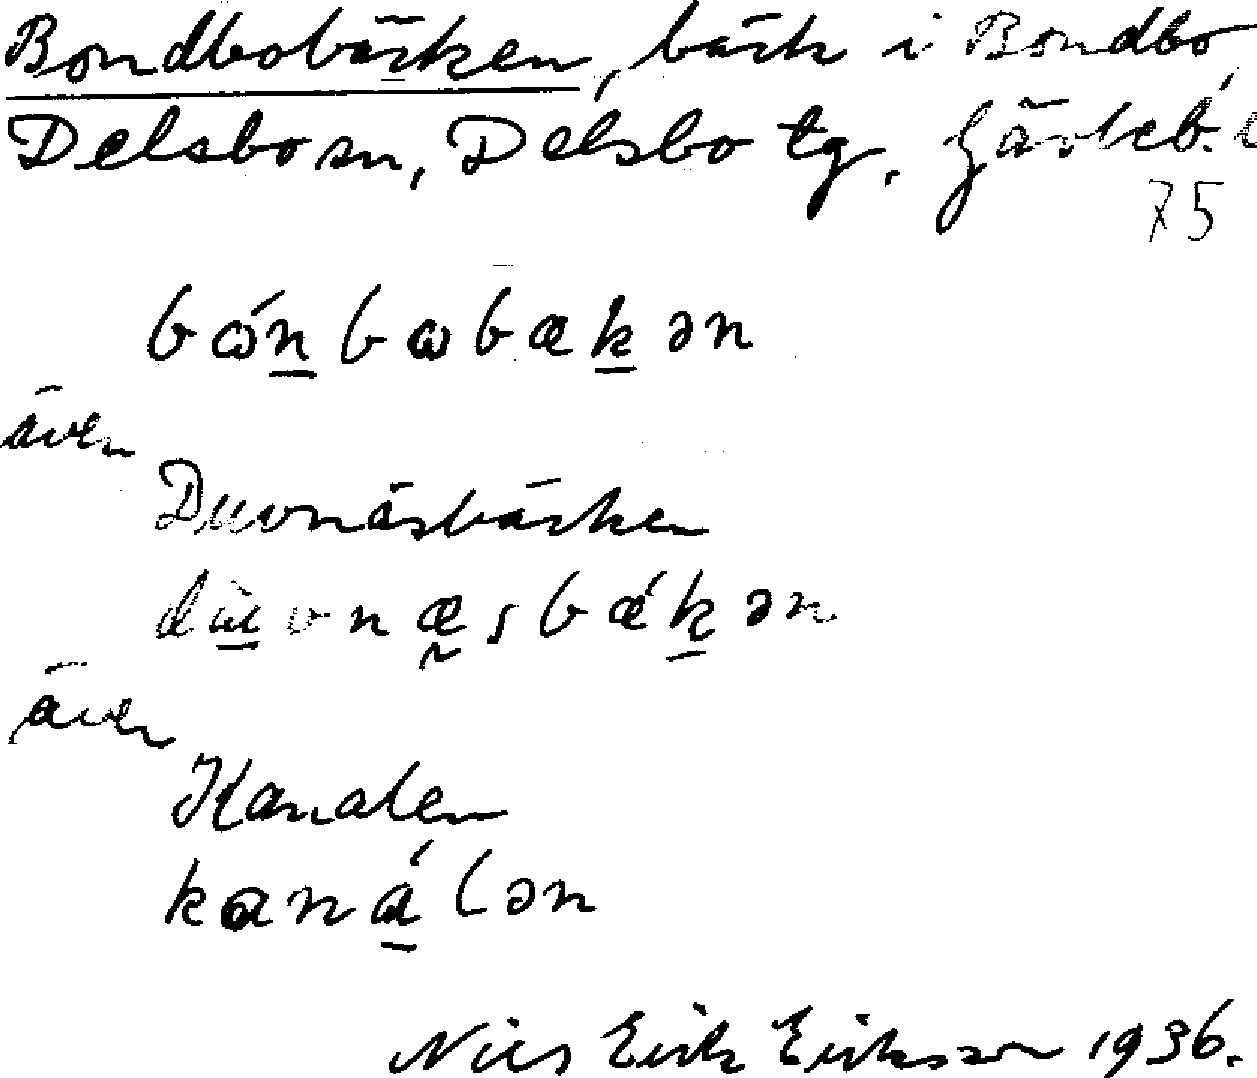 Bondbobäcken, bäck i Bondbo,
Delsbo sn, Delsbo tg. Gävleb. l
75
bώn̲bωbæk̲ən
även
Duvnäsbäcken
dù̲vnæ̰sbǽk̲ən
även
Kanalen
kaná̲lən
Nils Erik Eriksson 1936.